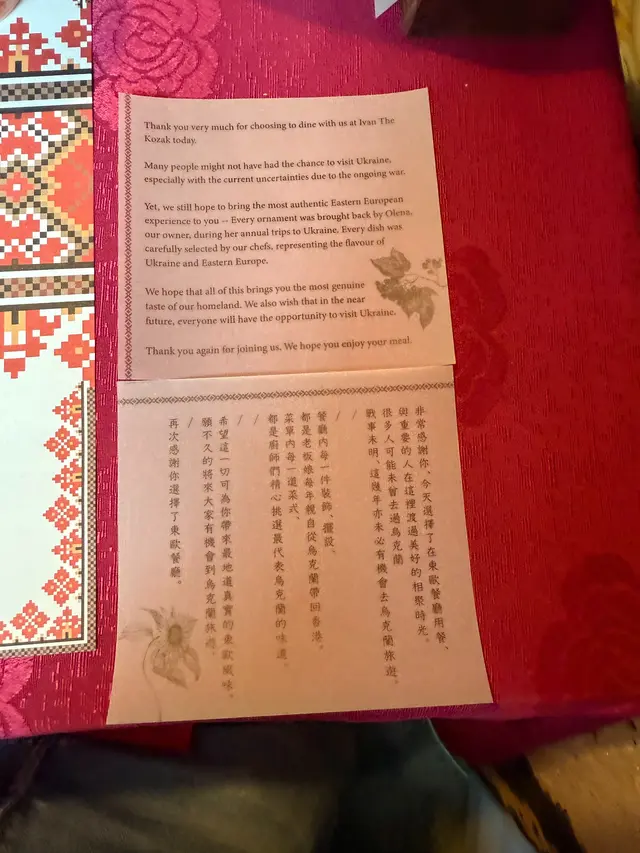 Thank you very much for choosing to dine with us at Ivan The
Kozak today.
Many people might not have had the chance to visit Ukraine,
especially with the current uncertainties due to the ongoing war.
Yet, we still hope to bring the most authentic Eastern European
experience to you -- Every ornament was brought back by Olena,
our owner, during her annual trips to Ukraine. Every dish was
carefully selected by our chefs, representing the flavour of
Ukraine and Eastern Europe.
We hope that all of this brings you the most genuine
taste of our homeland. We also wish that in the near
future, everyone will have the opportunity to visit Ukraine.
Thank you again for joining us. We hope you enjoy your meal.
非常感謝你、今天選擇了在東歐餐廳用餐、
與重要的人在這裡渡過美好的相聚時光。
很多人可能未曾去過烏克蘭
戰事未明、這幾年亦未必有機會去烏克蘭旅遊。
/
/
餐廳內每一件裝飾、擺設、
都是老板娘每年親自從烏克蘭帶回香港。
菜單內每一道菜式、
都是廚師們精心挑選最代表烏克蘭的味道。
/
/
希望這一切可為你帶來最地道真實的東歐風味。
願不久的將來大家有機會到烏克蘭旅遊。
/
再次感謝你選擇了東歐餐廳。